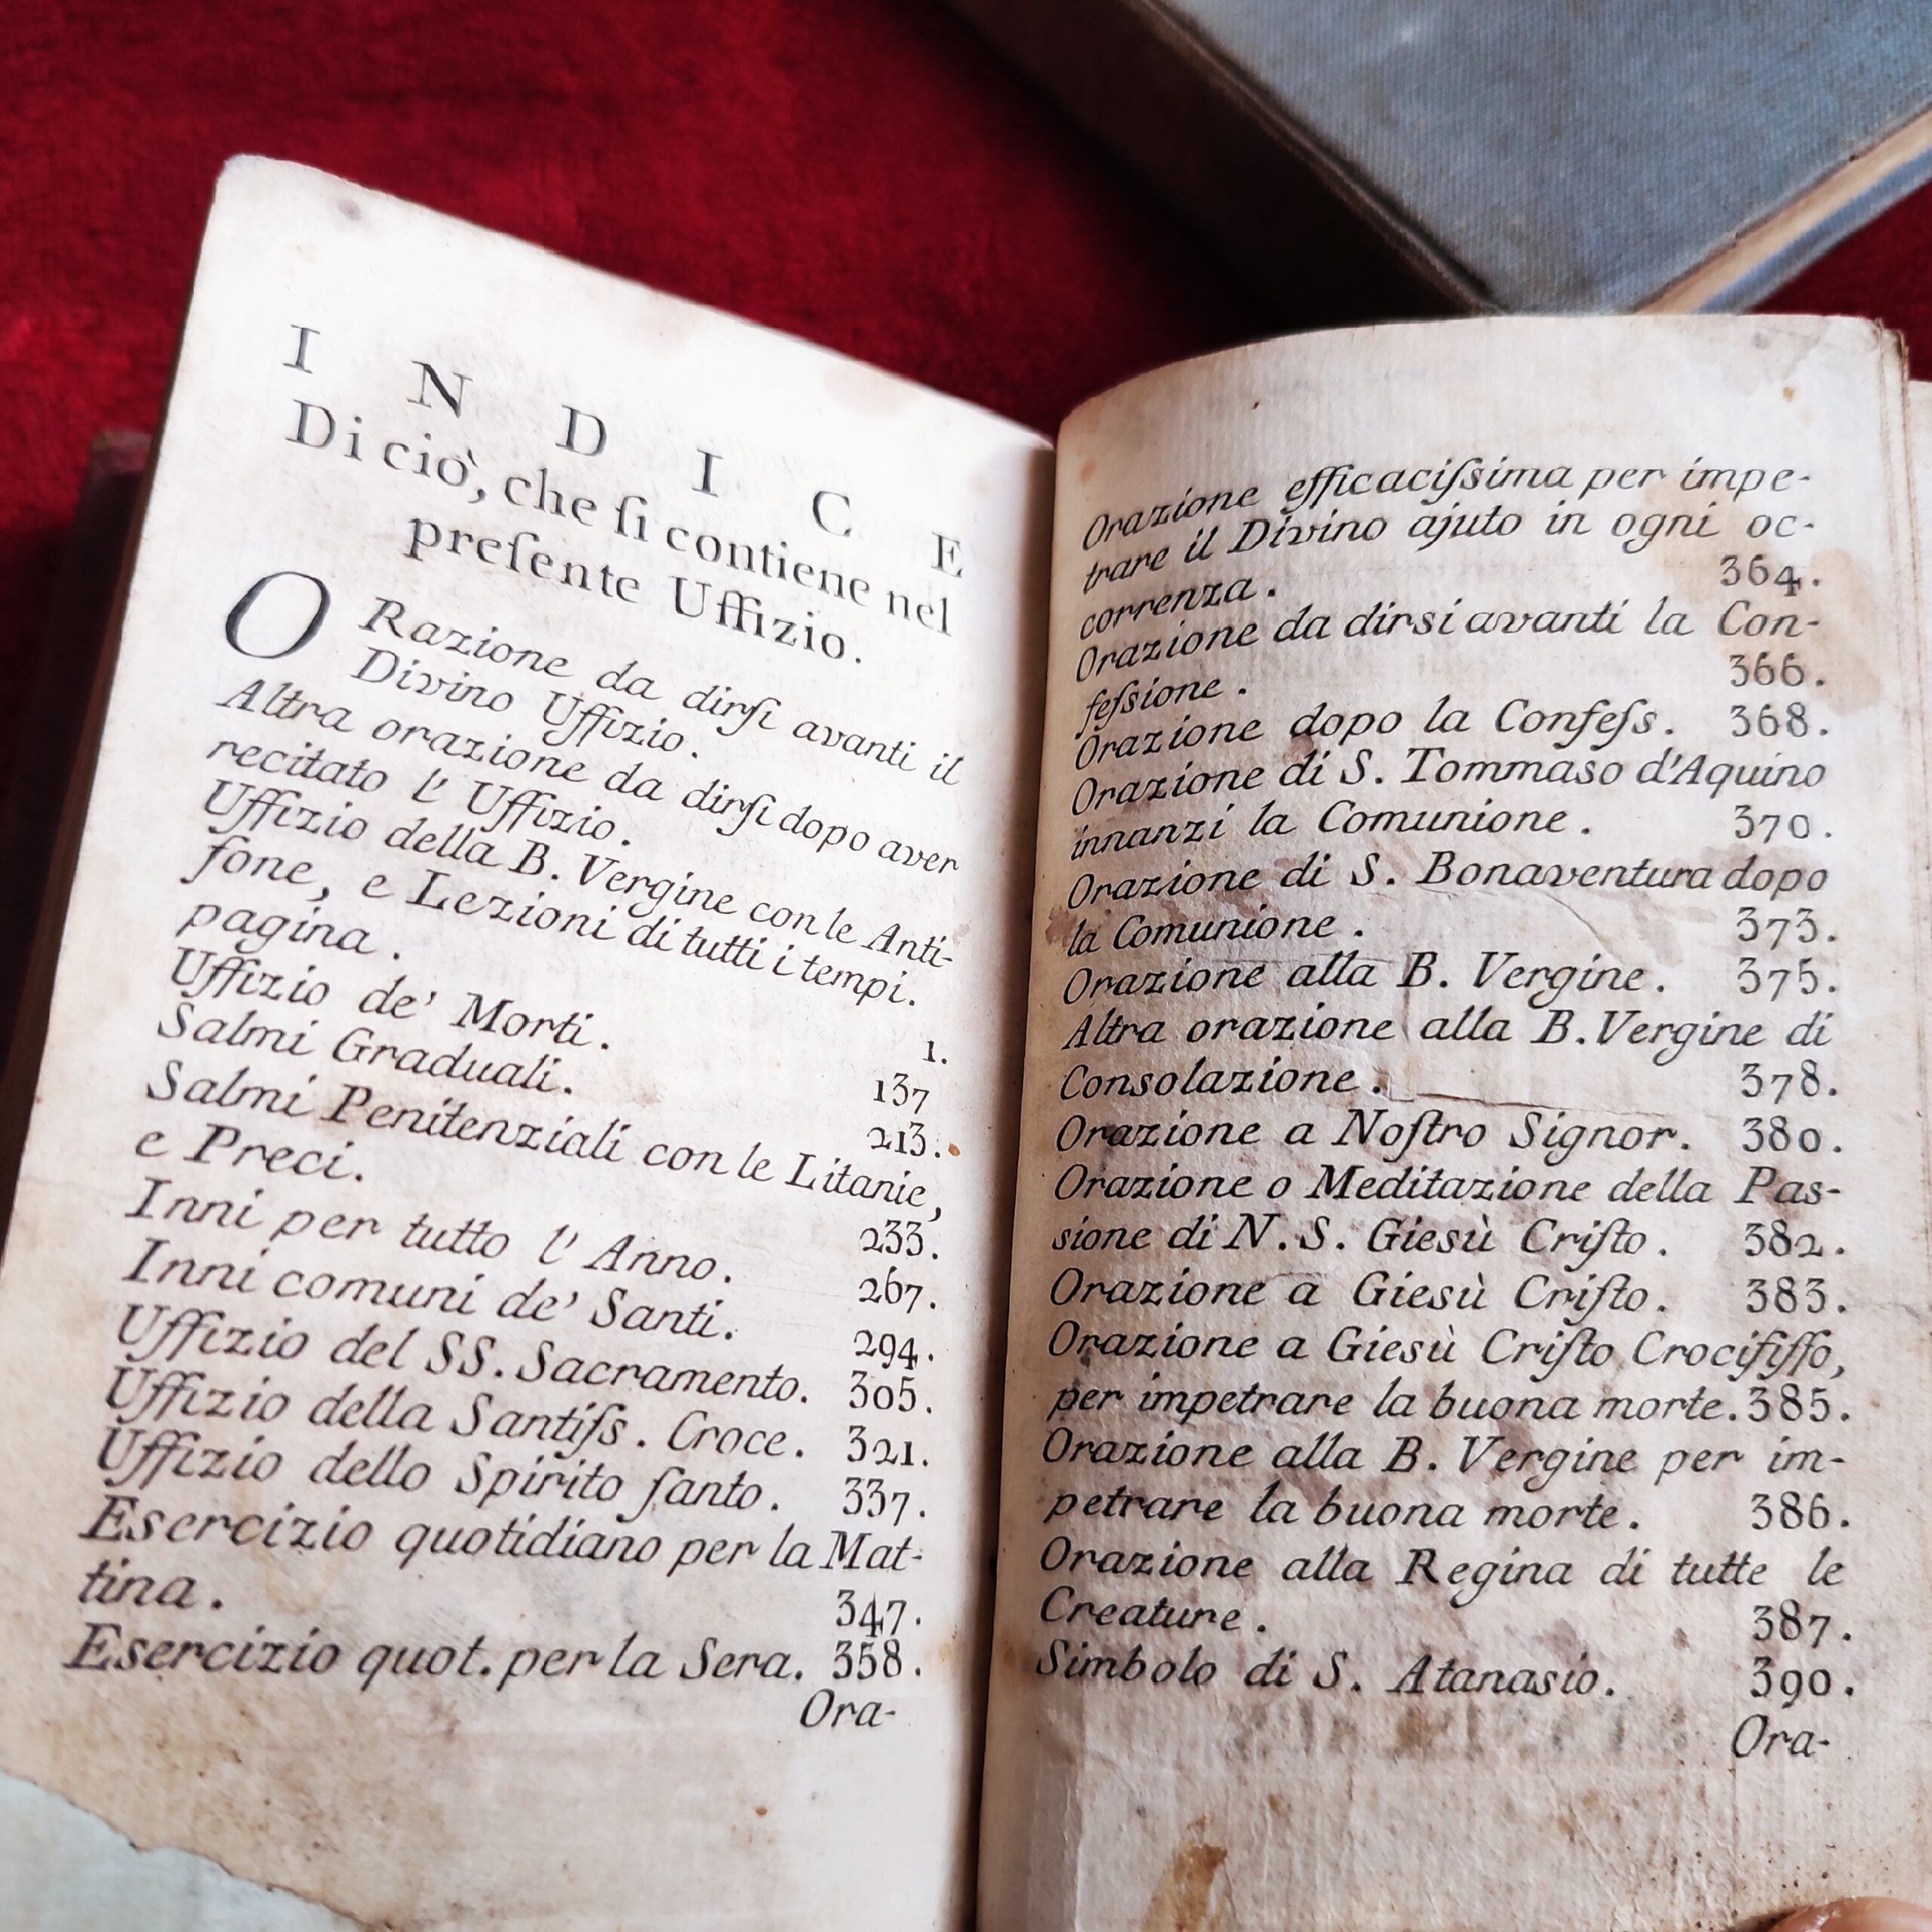 INDICE
Di ciò, che ſi contiene nel
preſente Uffizio.
ORazione da dirſi avanti il
Divino Uffizio.
Altra orazione da dirſi dopo aver
recitato l' Uffizio.
Uffizio della B. Vergine con le Anti-
fone, e Lezioni di tutti i tempi.
pagina. 1.
Uffizio de' Morti. 137
Salmi Graduali. 213.
Salmi Penitenziali con le Litanie,
e Preci. 233.
Inni per tutto l' Anno. 267.
Inni comuni de' Santi. 294.
Uffizio del SS. Sacramento. 305.
Uffizio della Santiſs. Croce. 321.
Uffizio dello Spirito ſanto. 337.
Esercizio quotidiano per la Mat-
tina. 347.
Esercizio quot. per la Sera. 358.
Ora-
Orazione efficaciſsima per impe-
trare il Divino ajuto in ogni oc-
correnza. 364.
Orazione da dirsi avanti la Con-
feſsione. 366.
Orazione dopo la Confeſs. 368.
Orazione di S. Tommaso d'Aquino
innanzi la Comunione. 370.
Orazione di S. Bonaventura dopo
la Comunione. 373.
Orazione alla B. Vergine. 375.
Altra orazione alla B. Vergine di
Consolazione. 378.
Orazione a Noſtro Signor. 380.
Orazione o Meditazione della Pas-
sione di N. S. Giesù Criſto. 382.
Orazione a Giesù Criſto. 383.
Orazione a Giesù Criſto Crocifiſſo,
per impetrare la buona morte. 385.
Orazione alla B. Vergine per im-
petrare la buona morte. 386.
Orazione alla Regina di tutte le
Creature. 387.
Simbolo di S. Atanasio. 390.
Ora-